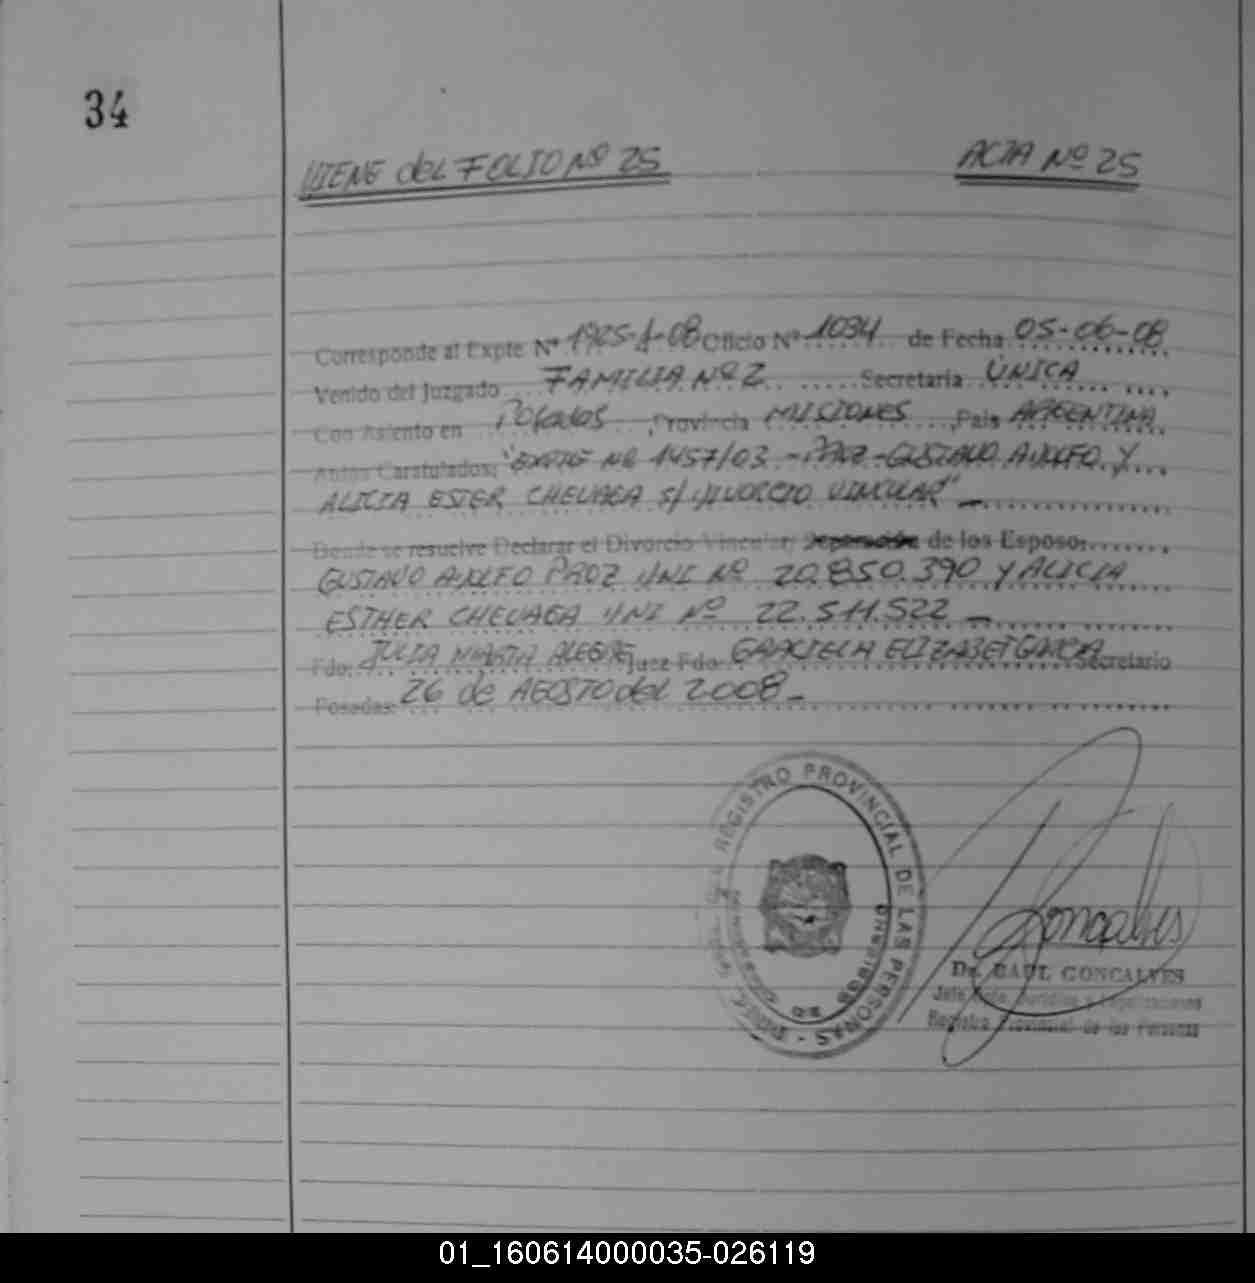 34
VIENE del FOLIO Nº 25
ACTA Nº 25
Corresponde al Expte Nº 1925-A-08 Oficio Nº 1034 de Fecha 05-06-08
Venido del Juzgado FAMILIA Nº 2 Secretaria ÚNICA
Con Asiento en Posadas, Provincia MISIONES, Pais ARGENTINA
Autos Caratulados: "EXPTE Nº 1457/03 - PROZ - GUSTAVO ADOLFO Y
ALICIA ESTER CHEVAGA S/ DIVORCIO VINCULAR"
Donde se resuelve Declarar el Divorcio Vincular, Separación de los Esposos
GUSTAVO ADOLFO PROZ DNI Nº 20.850.390 Y ALICIA
ESTHER CHEVAGA DNI Nº 22.511.522
Fdo: JULIA MARTA ALEGRE Juez Fdo: GRACIELA ELIZABET GARCIA Secretario
Posadas: 26 de AGOSTO del 2008
REGISTRO PROVINCIAL DE LAS PERSONAS
Goncalves
Dr. RAUL GONCALVES
Jefe Dpto. Jurídico y Legalizaciones
Registro Provincial de las Personas
01_160614000035-026119